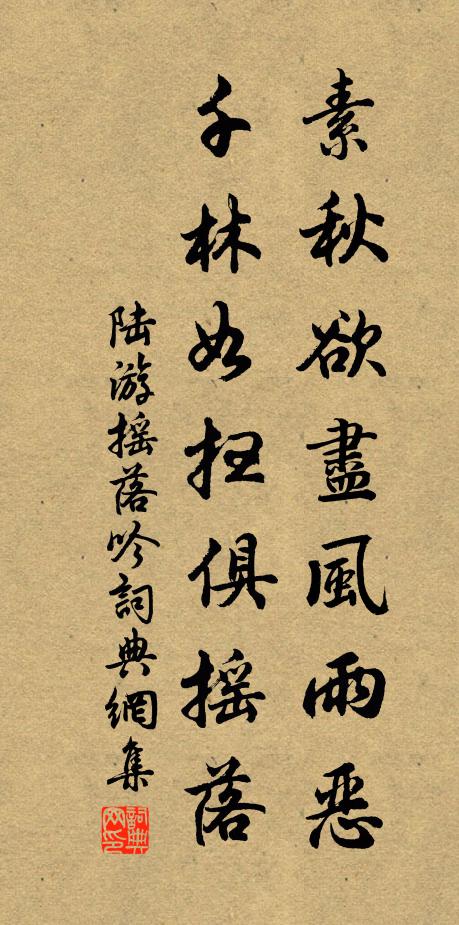 素秋欲盡風雨惡
千林如扫俱摇落
陆游摇落吟詞典網集
詞典網印